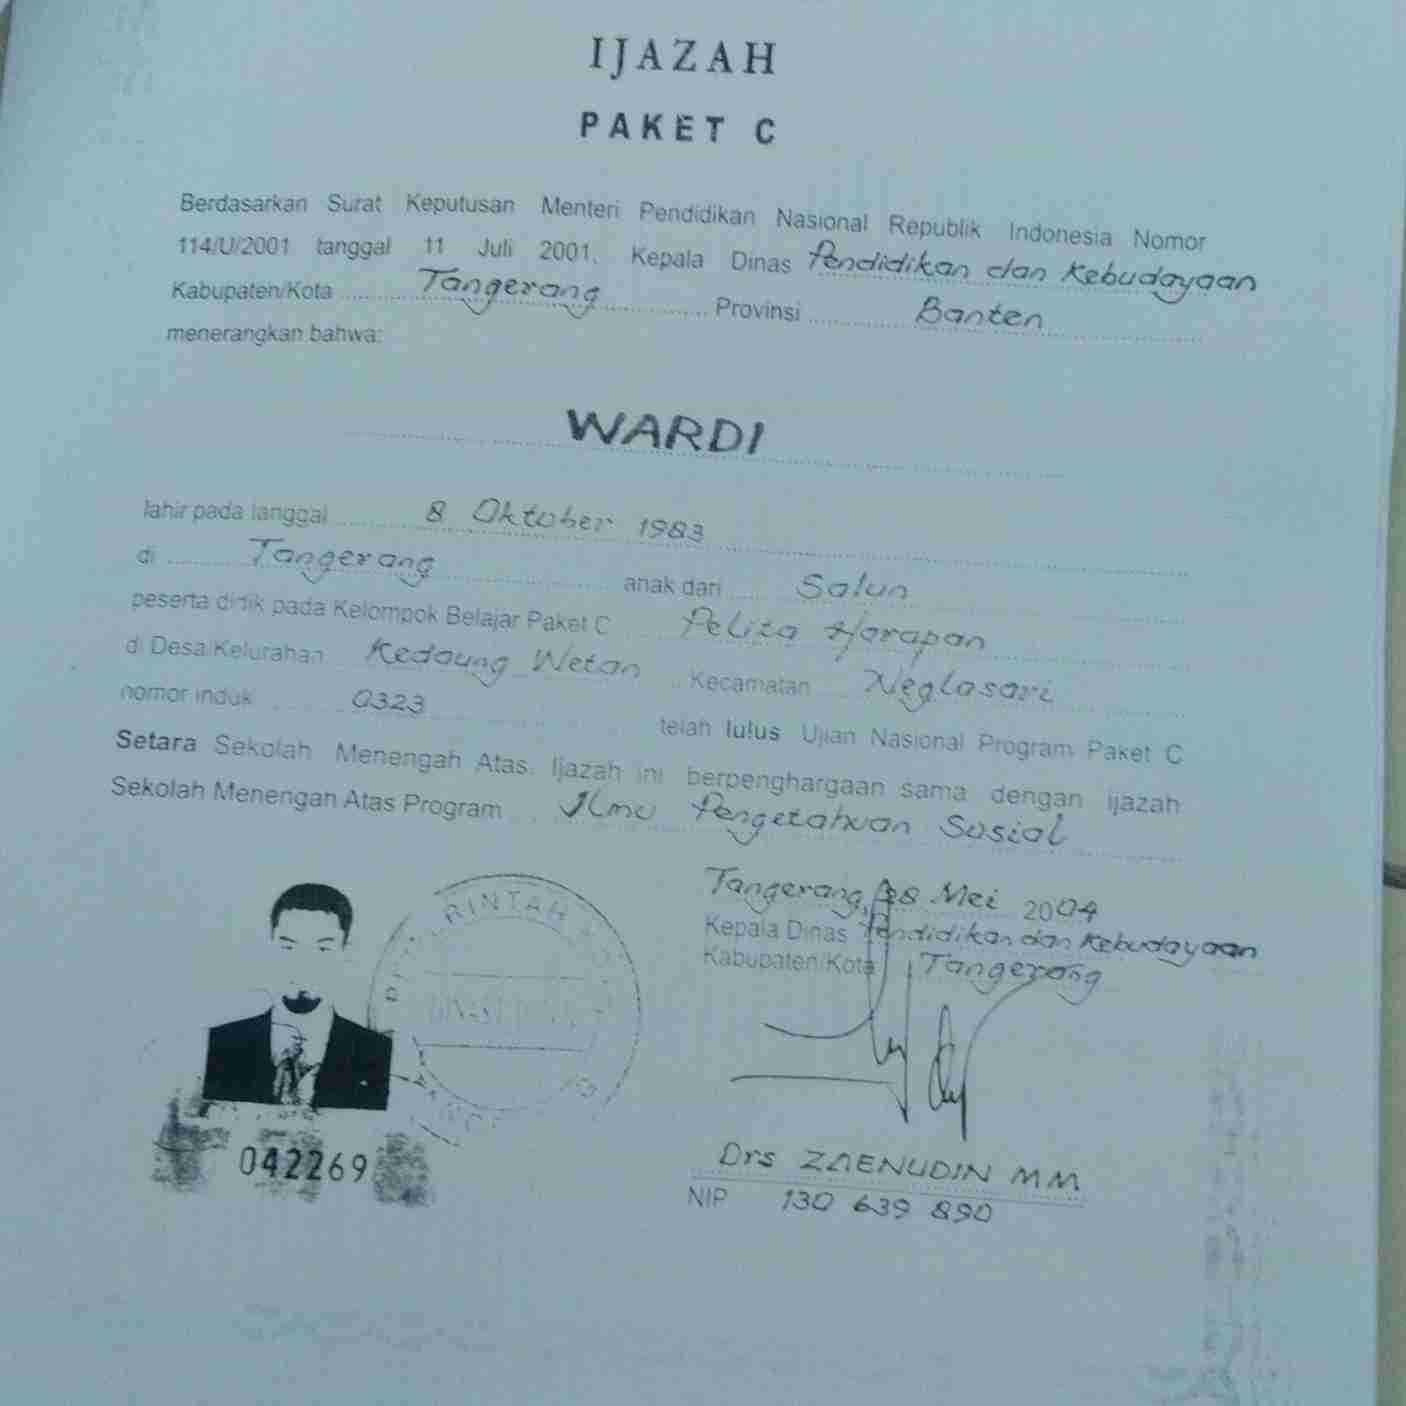 IJAZAH
PAKET C
Berdasarkan Surat Keputusan Menteri Pendidikan Nasional Republik Indonesia Nomor
114/U/2001 tanggal 11 Juli 2001, Kepala Dinas Pendidikan dan Kebudayaan
Kabupaten/Kota Tangerang Provinsi Banten
menerangkan bahwa:
WARDI
lahir pada tanggal 8 Oktober 1983
di Tangerang anak dari Salun
peserta didik pada Kelompok Belajar Paket C Pelita Harapan
di Desa/Kelurahan Kedaung Wetan Kecamatan Neglasari
nomor induk 0323 telah lulus Ujian Nasional Program Paket C
Setara Sekolah Menengah Atas. Ijazah ini berpenghargaan sama dengan ijazah
Sekolah Menengah Atas Program Ilmu Pengetahuan Sosial
Tangerang, 28 Mei 2004
Kepala Dinas Pendidikan dan Kebudayaan
Kabupaten/Kota Tangerang
042269
Drs ZAENUDIN MM
NIP 130 639 890